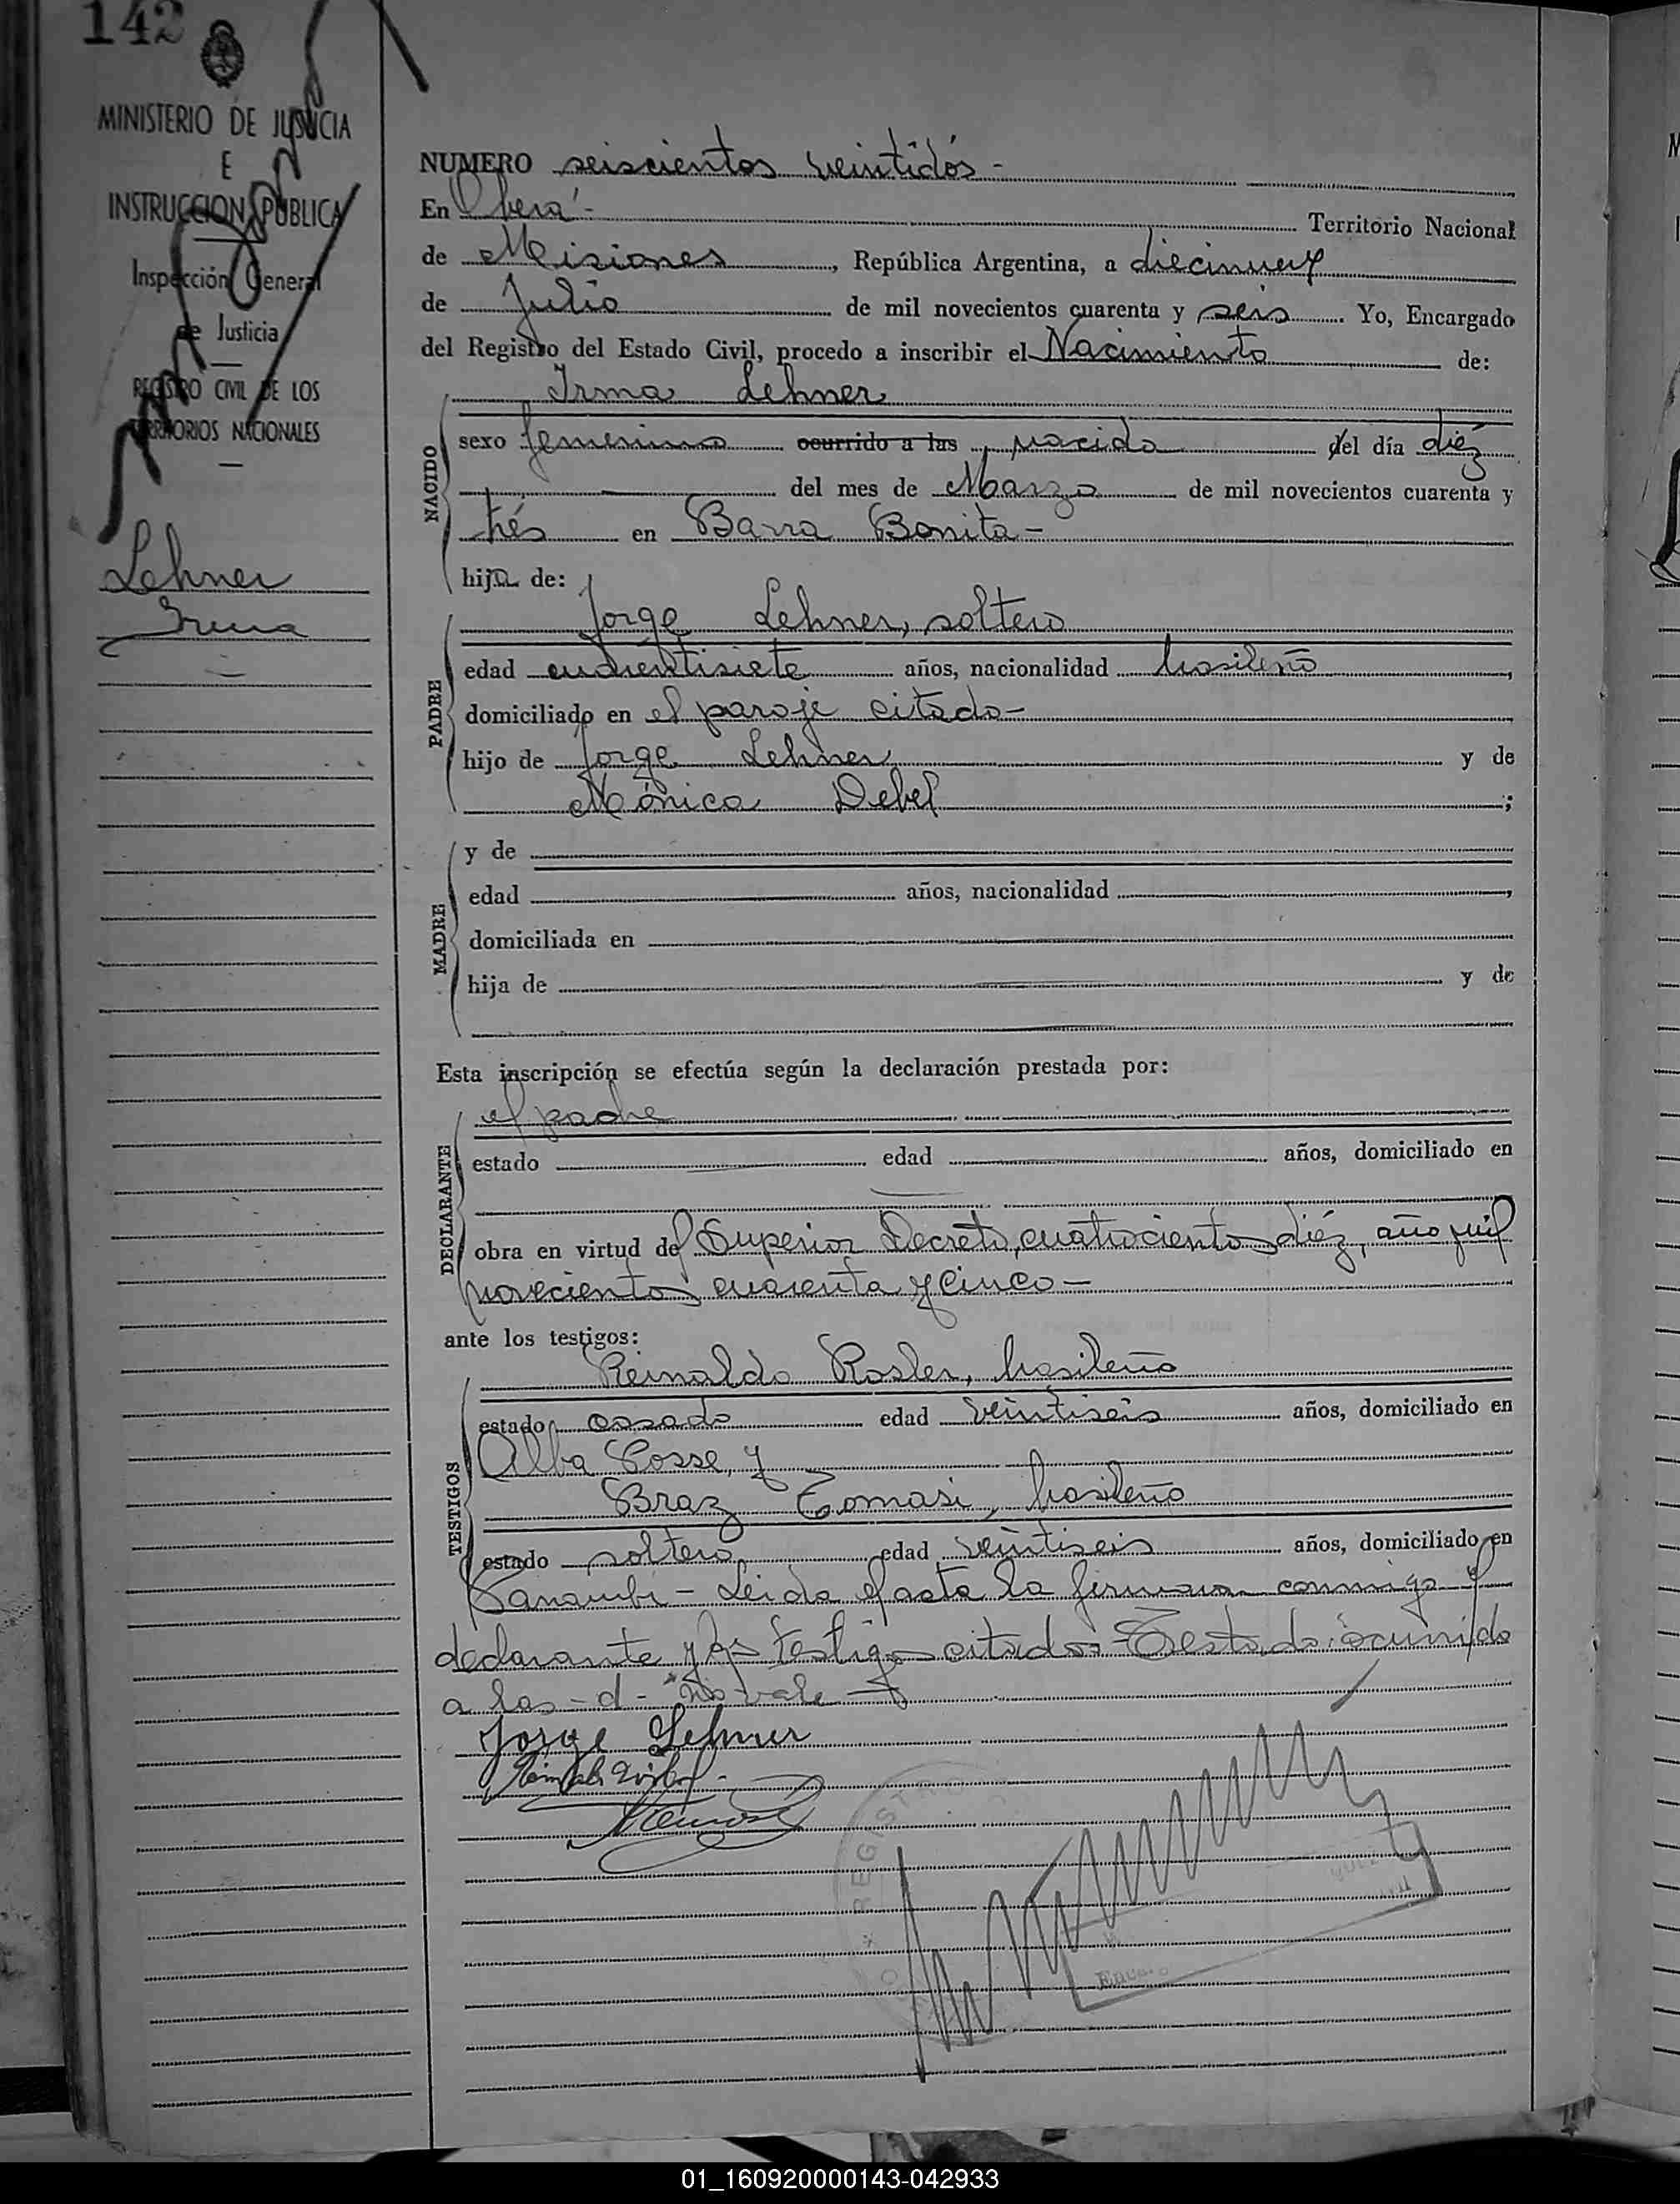 142
MINISTERIO DE JUSTICIA
E
INSTRUCCION PUBLICA
Inspección General
de Justicia
REGISTRO CIVIL DE LOS
TERRITORIOS NACIONALES
Lehner
Irma
NUMERO seiscientos veintidós -
En Oberá - Territorio Nacional
de Misiones, República Argentina, a diecinueve
de Julio de mil novecientos cuarenta y seis. Yo, Encargado
del Registro del Estado Civil, procedo a inscribir el Nacimiento de:
Irma Lehner
NACIDO
sexo femenino ocurrido a las nacida del día diéz
del mes de Marzo de mil novecientos cuarenta y
trés en Barra Bonita -
hija de:
PADRE
Jorge Lehner, soltero
edad años, nacionalidad brasileño
domiciliado en el paraje citado -
hijo de Jorge Lehner y de
Mónica Debel ;
MADRE
y de
edad años, nacionalidad ,
domiciliada en
hija de y de
Esta inscripción se efectúa según la declaración prestada por:
DECLARANTE
el padre
estado edad años, domiciliado en
obra en virtud del Superior Decreto, cuatrocientos diéz, año mil
novecientos cuarenta y cinco -
ante los testigos:
TESTIGOS
Reinaldo Rosler, brasileño
estado casado edad veintiseis años, domiciliado en
Alba Posse, y
Braz Tomasi, brasileño
estado soltero edad veintiseis años, domiciliado en
Panambí - Leida el acta la firman conmigo el
declarante y los testigos citados - Testado: ocurrido
a las - d - No vale -
Jorge Lehner
REGISTRO
01_160920000143-042933